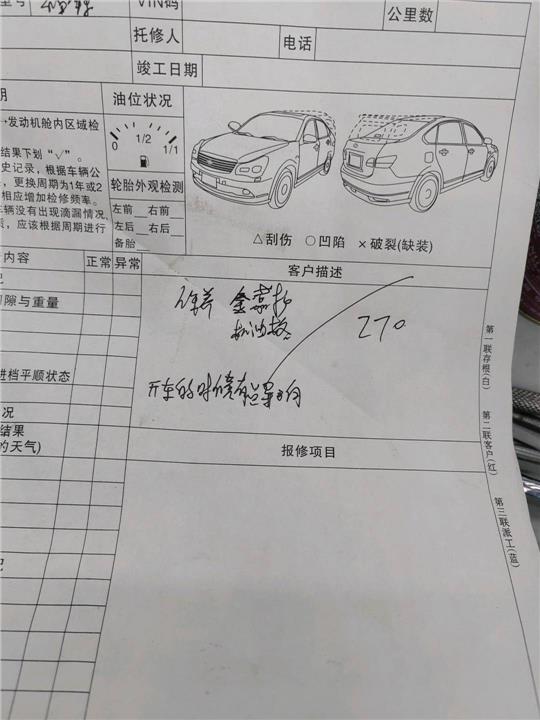 型号
VIN码
公里数
托修人
电话
竣工日期
明
油位状况
→发动机舱内区域检
0 1/2 1/1
结果下划“√”。
史记录，根据车辆公
，更换周期为1年或2
相应增加检修频率。
车辆没有出现滴漏情况，
，应该根据周期进行
轮胎外观检测
左前 右前
左后 右后
备胎
△刮伤 ○凹陷 ×破裂(缺装)
内容
正常
异常
客户描述
间隙与重量
保养 金嘉护
机油格
270
进档平顺状态
开车的时候有异响
况
结果
的天气)
报修项目
况
第一联存根(白)
第二联客户(红)
第三联派工(蓝)